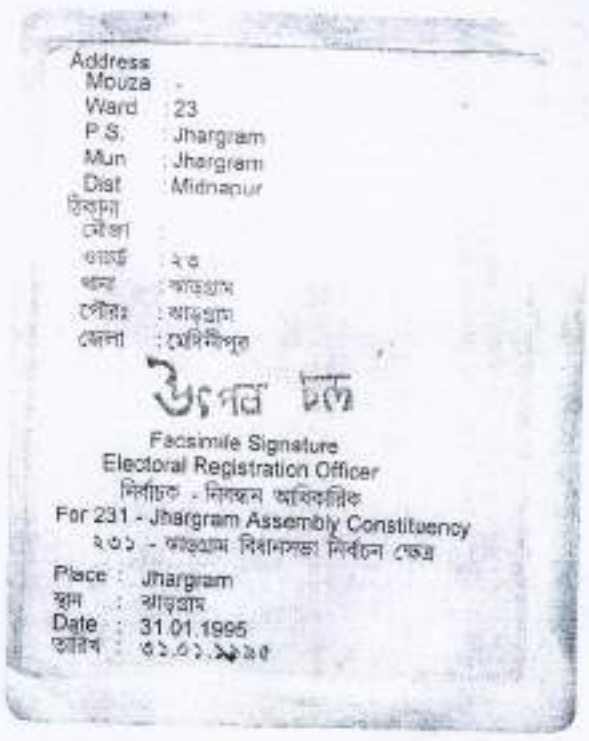 Address
Mouza : -
Ward : 23
P.S. : Jhargram
Mun : Jhargram
Dist : Midnapur
ঠিকানা
মৌজা :
ওয়ার্ড : ২৩
থানা : ঝাড়গ্রাম
পৌরঃ : ঝাড়গ্রাম
জেলা : মেদিনীপুর
Facsimile Signature
Electoral Registration Officer
নির্বাচক - নিবন্ধন আধিকারিক
For 231 - Jhargram Assembly Constituency
২৩১ - ঝাড়গ্রাম বিধানসভা নির্বাচন ক্ষেত্র
Place : Jhargram
স্থান : ঝাড়গ্রাম
Date : 31.01.1995
তারিখ : ৩১.০১.১৯৯৫